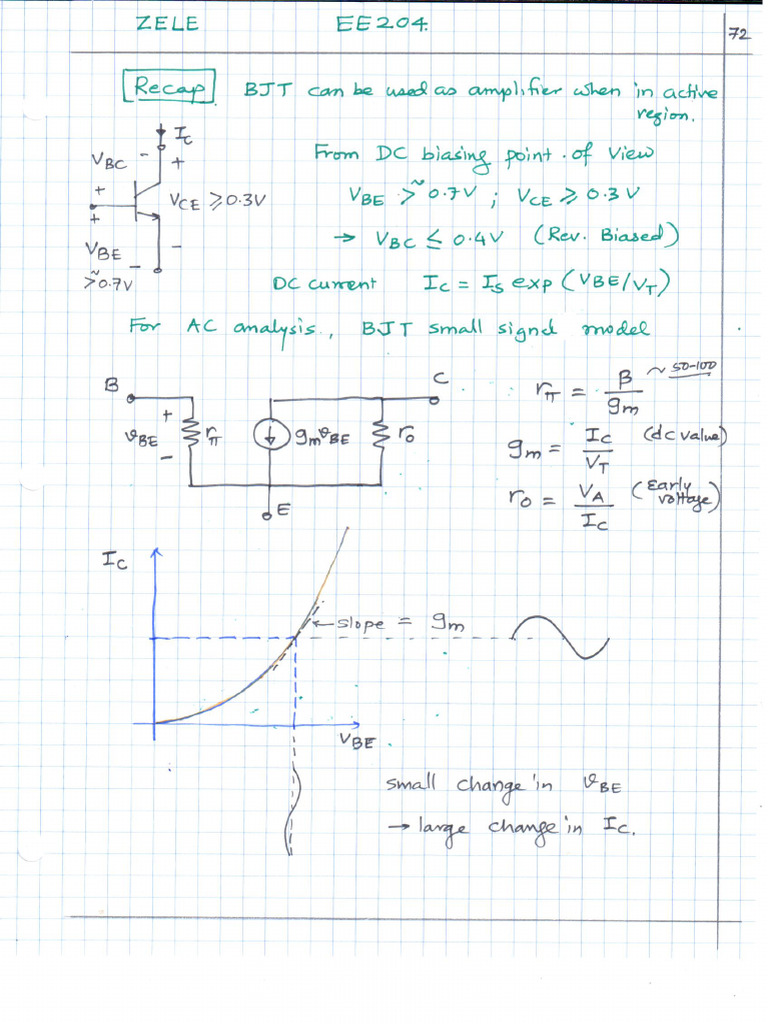 ZELE EE204. 72
Recap BJT can be used as amplifier when in active
region.
IC
VBC - +
From DC biasing point of View
+ VCE ≥ 0.3V
VBE >~ 0.7V ; VCE ≥ 0.3V
+
→ VBC ≤ 0.4V (Rev. Biased)
VBE -
>~ 0.7V -
DC current IC = IS exp (VBE/VT)
For AC analysis, BJT small signal model
B C
+ vBE - rπ gmvBE ro
E
rπ = β/gm ~ 50-100
gm = IC/VT (dc value)
ro = VA/IC (Early voltage)
IC
← slope = gm
VBE
small change in vBE
→ large change in IC.